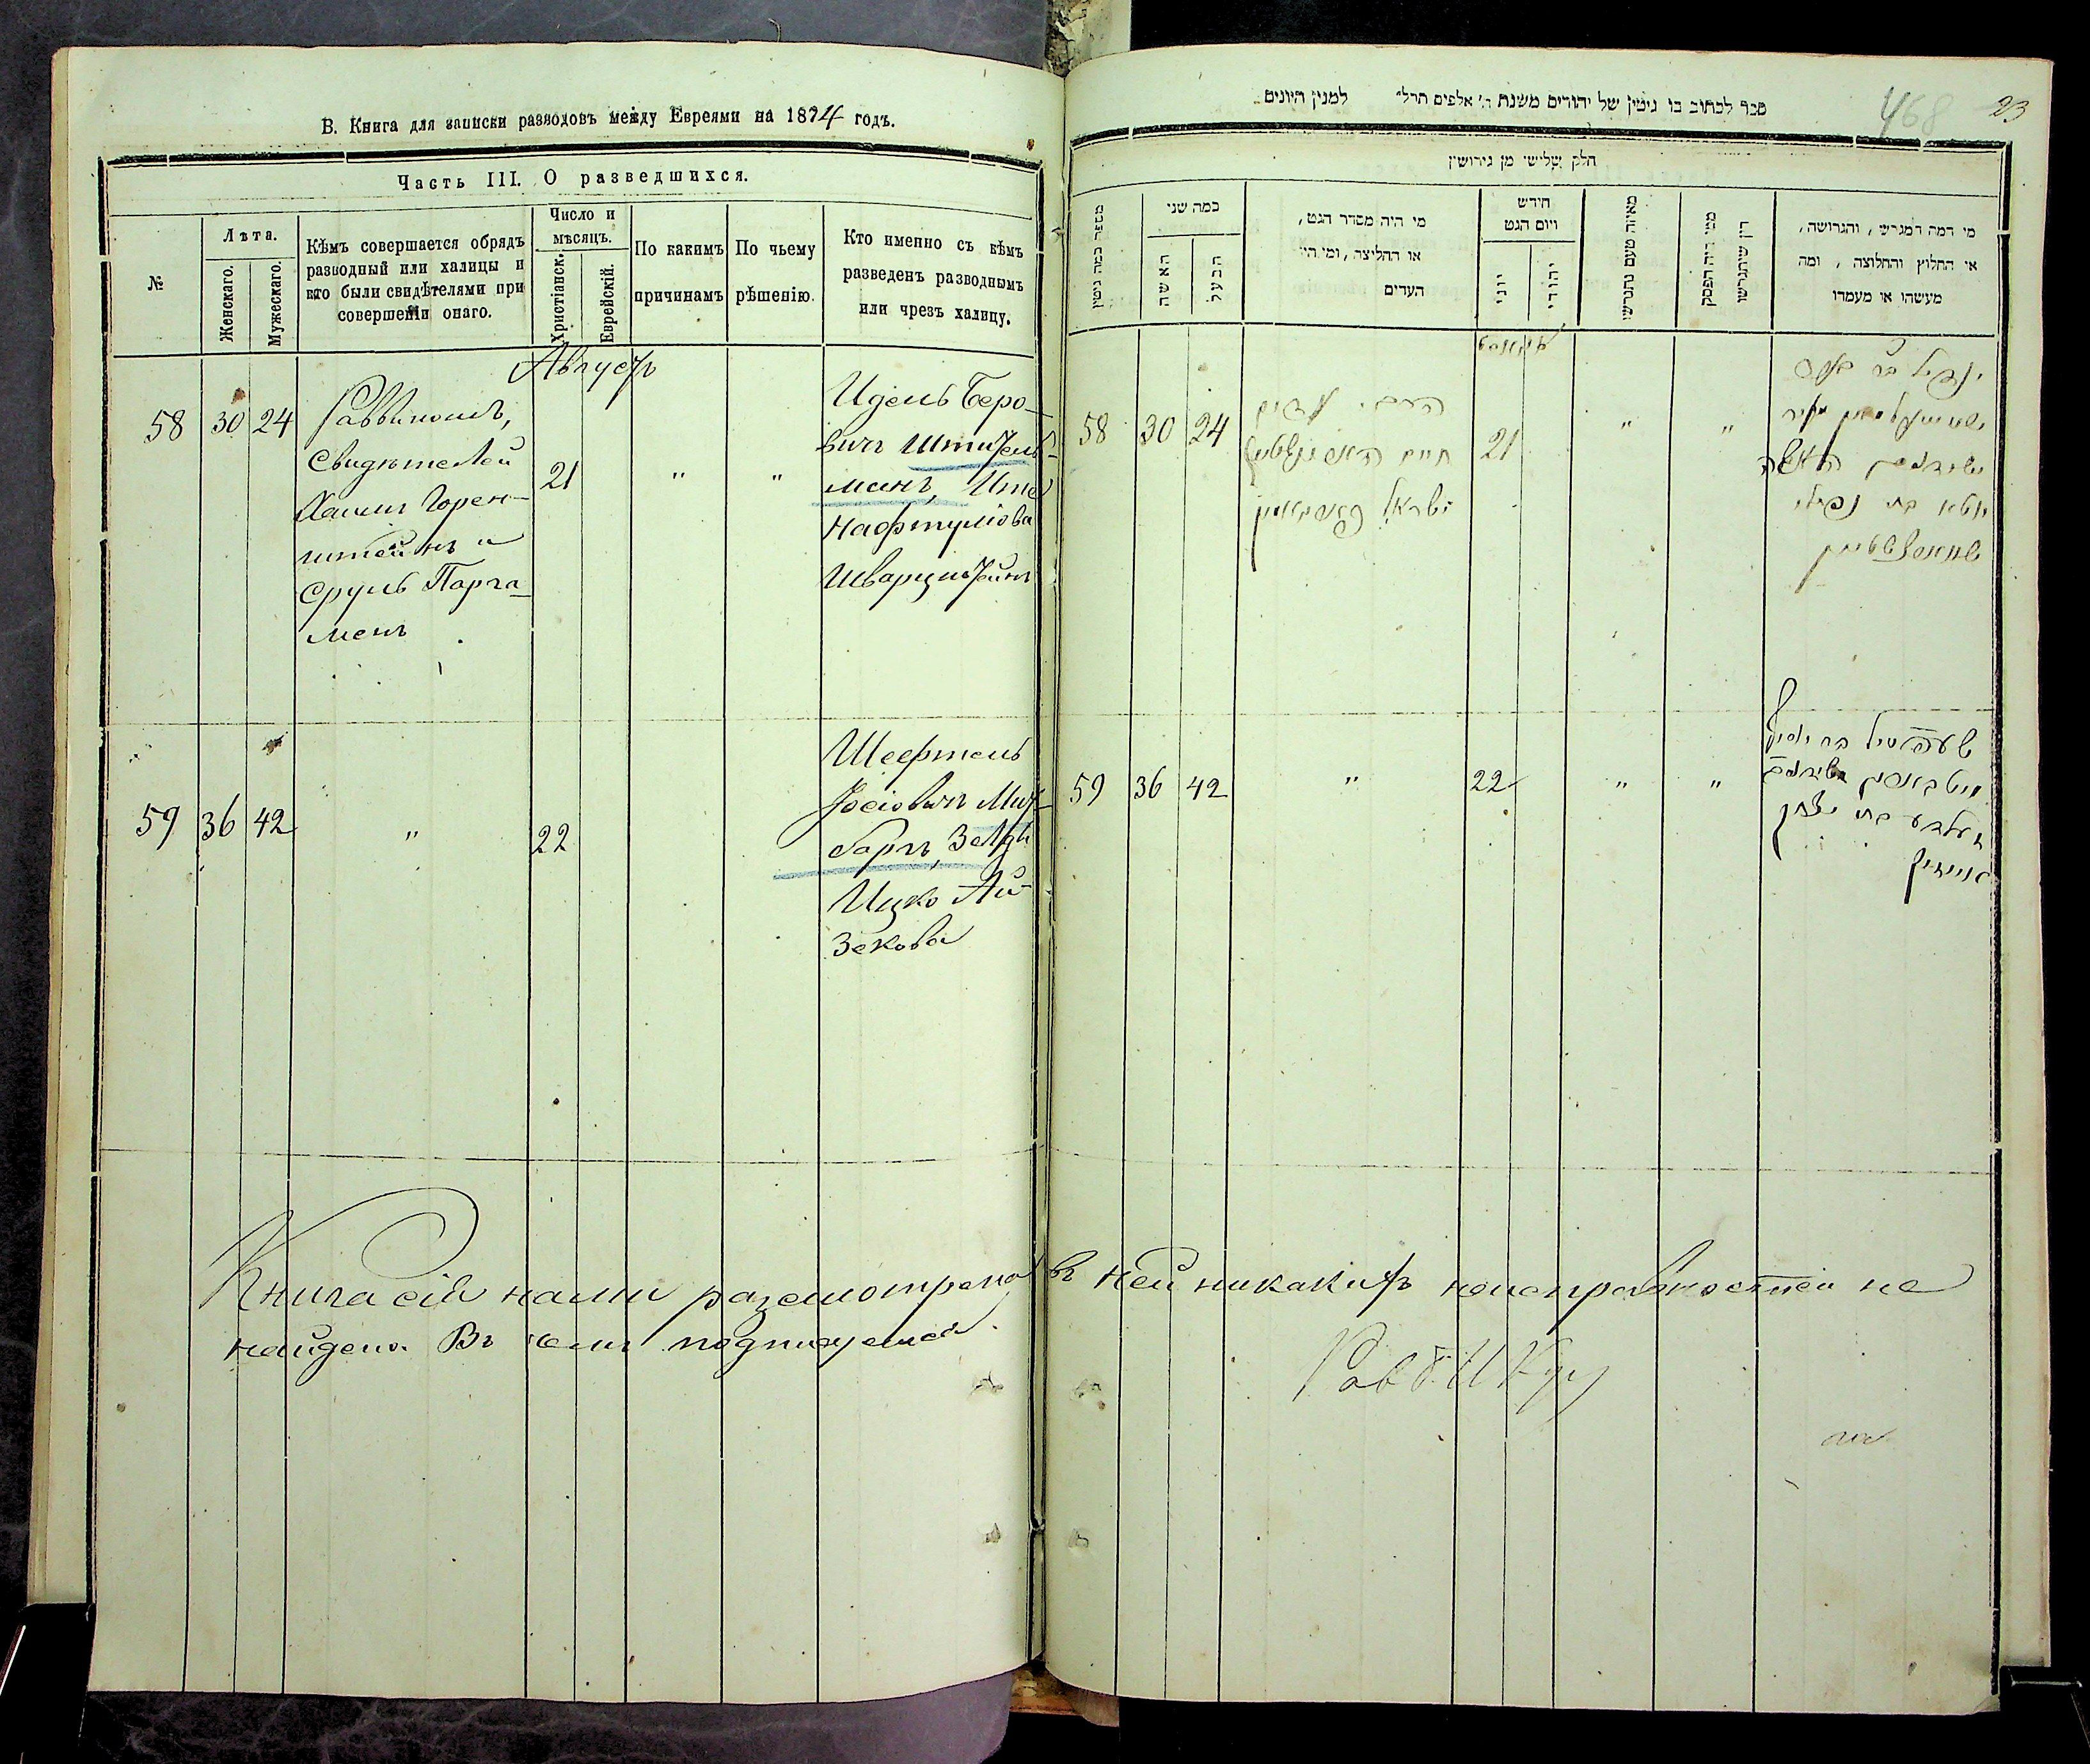 В. Книга для записки разводовъ между Евреями на 1874 годъ.
Часть III. О разведшихся.
№
Лѣта.
Женскаго.
Мужескаго.
Кѣмъ совершается обрядъ
разводный или халицы и
кто были свидѣтелями при
совершеніи онаго.
Число и
мѣсяцъ.
Христіанск.
Еврейскій.
По какимъ
причинамъ
По чьему
рѣшенію.
Кто именно съ кѣмъ
разведенъ разводнымъ
или чрезъ халицу.
Августъ
58 30 24
Раввиномъ,
Свидѣтелей
Хаимъ Горен-
штейнъ и
Сруль Парга-
менъ
21 " "
Идель Беро-
вичъ Штитель-
манъ, Ите
Нафтулiова
Шварцштейнъ
59 36 42 " 22
Шефтель
Іосіовичъ
Зельда
Ицко Ай-
зекова
Книга сія нами разсмотрена въ ней никакихъ неисправностей не
найдено. Въ чемъ подписуемся.
468 23
ספר לכתוב בו גיטין של יהודים משנת ה' אלפים תרל" למנין היונים
חלק שלישי מן גירושין
מספר כמה גיטין
כמה שני
האשה
הבעל
מי היה מסדר הגט,
או החליצה, ומי היו
העדים
חידש
ויום הגט
יוני
יהודי
מאיזה טעם נתגרשו
ממי היה הפסק
דין שיתגרשו
מי המה המגרש, והגרושה,
או החלוץ והחלוצה, ומה
מעשהו או מעמדו
אויגוסט
58 30 24
חיים הארינשטיין
ישראל פארגאמין
21 " "
האשה
איטא בת נפתלי
שווארצשטיין
59 36 42 " 22 " "